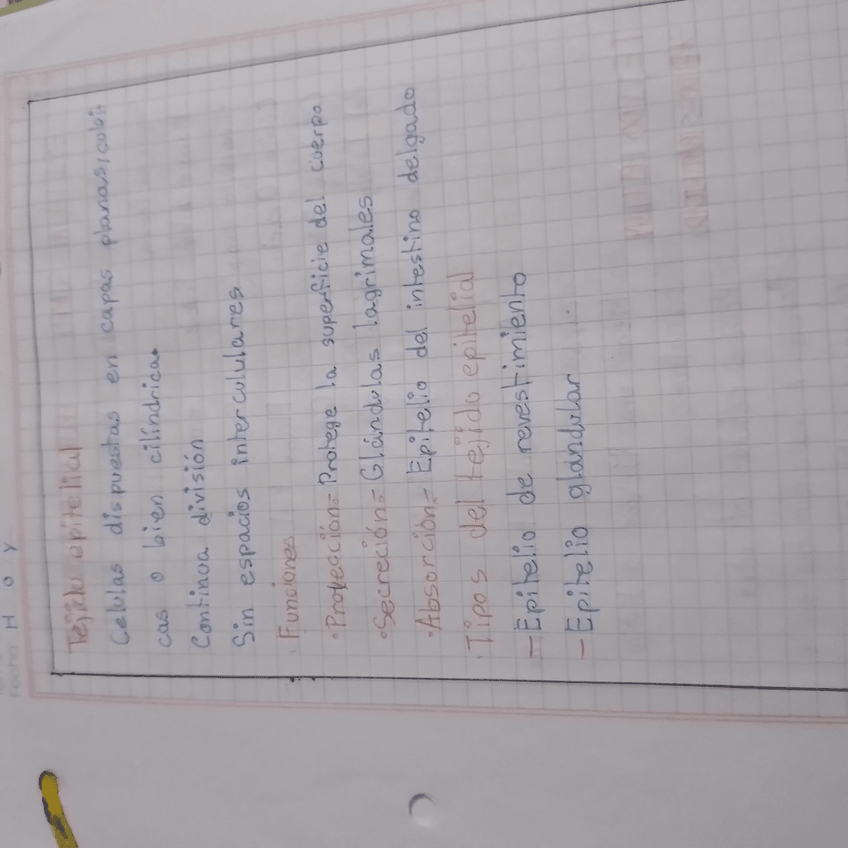 Fecha H O Y
Tejido epitelial
Celulas dispuestas en capas planas, cubi-
cas o bien cilíndricas
Continua división
Sin espacios intercululares
· Funciones
· Protección = Protege la superficie del cuerpo
· Secreción = Glándulas lagrimales
· Absorción = Epitelio del intestino delgado
· Tipos del tejido epitelial
- Epitelio de revestimiento
- Epitelio glandular